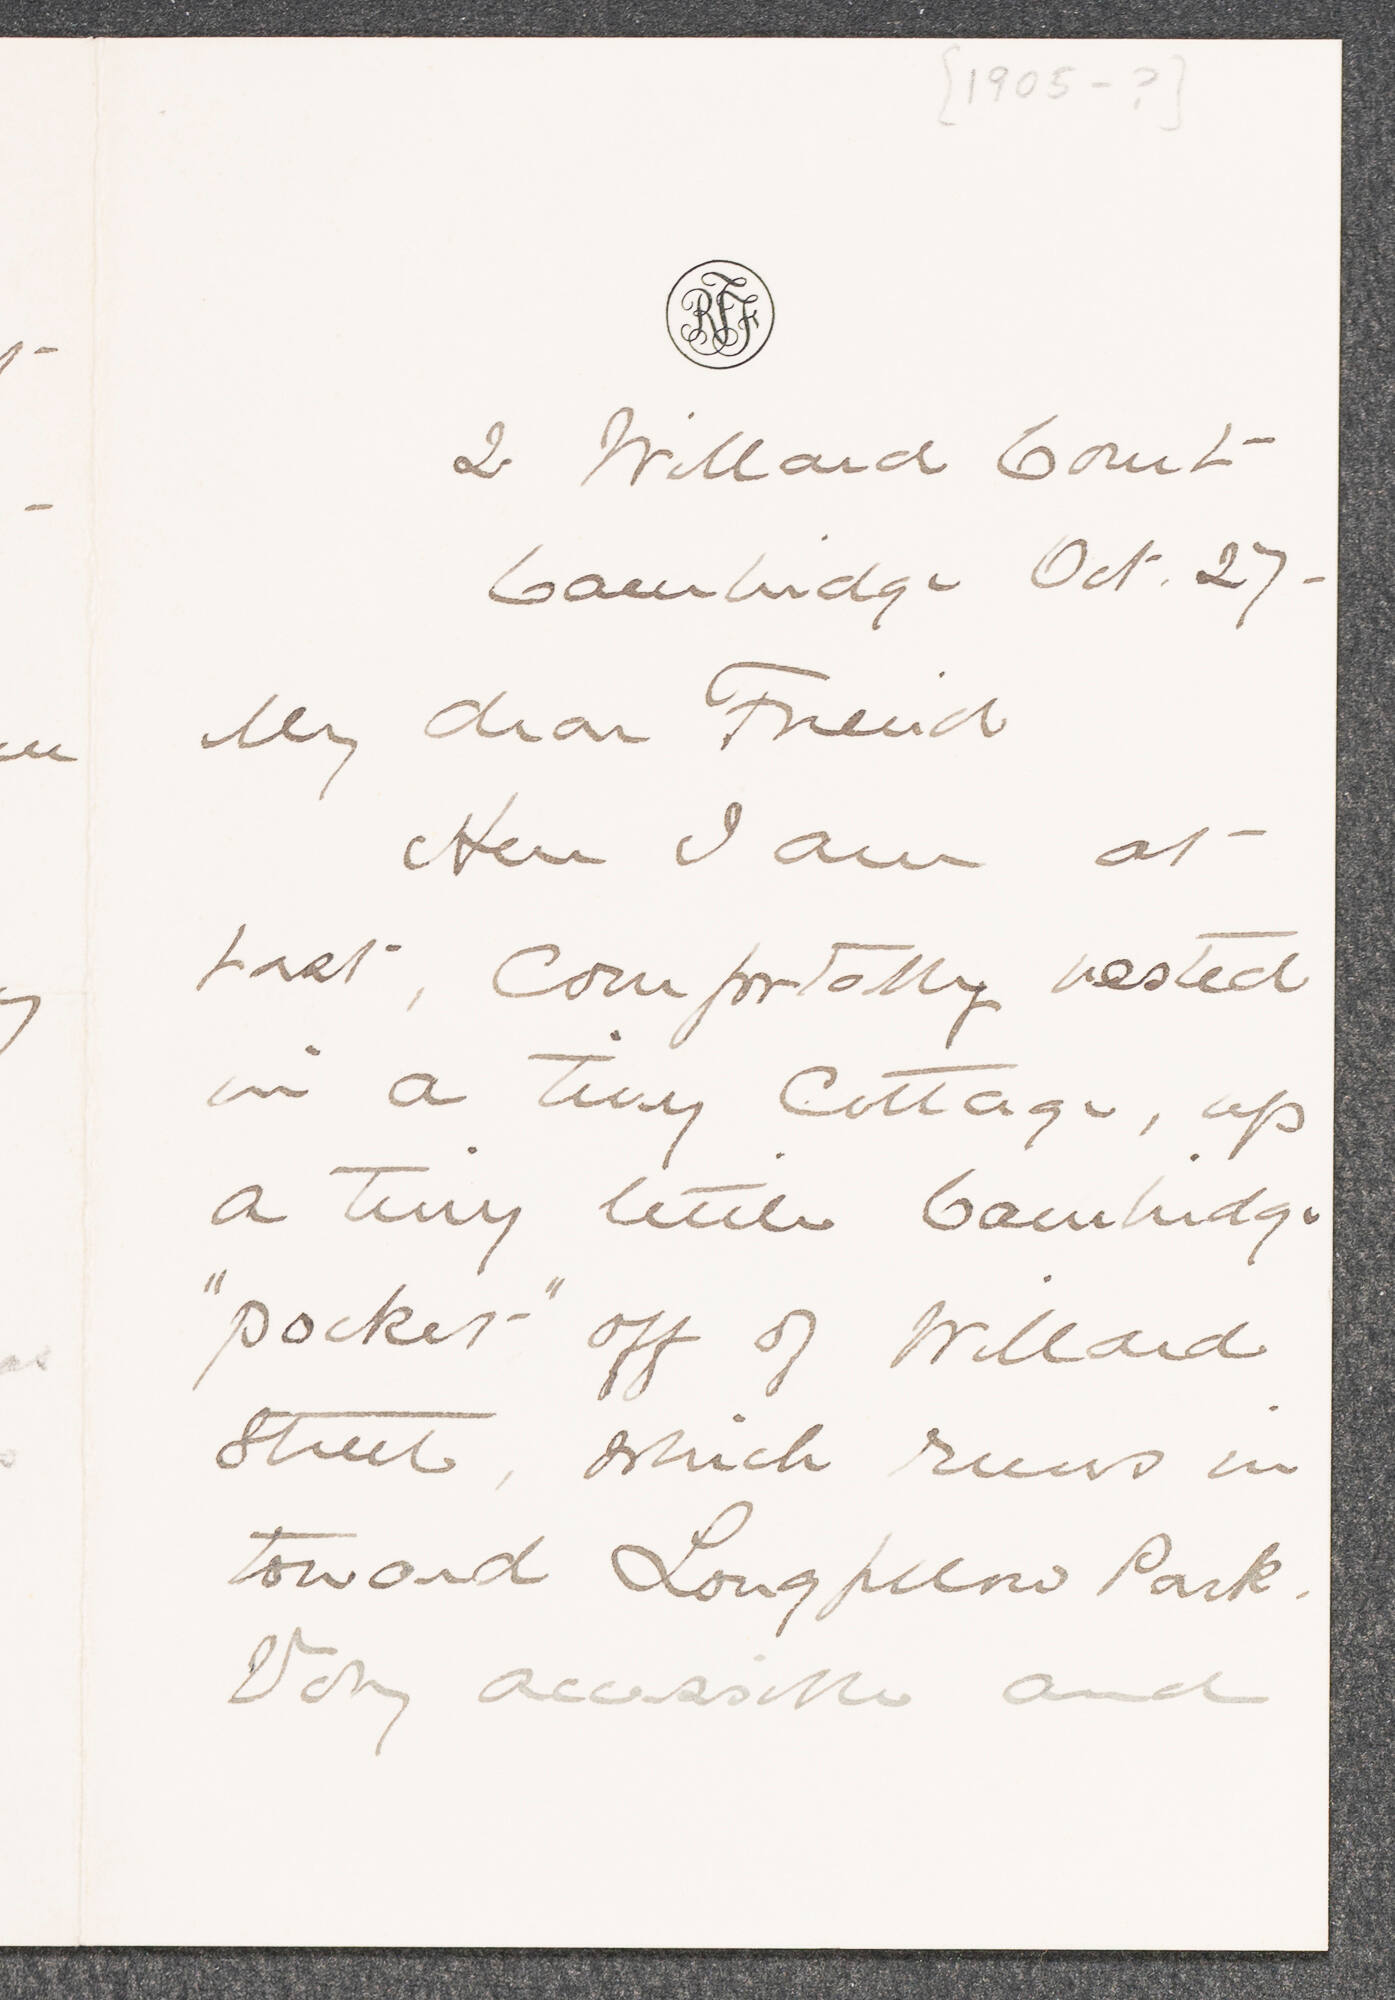 [1905-?]
RFF
2 Willard Court
Cambridge Oct. 27-
My dear Friend
Here I am at
last, comfortably nested
in a tiny cottage, up
a tiny little Cambridge
"pocket" off of Willard
Street, which runs in
toward Longfellow Park.
Very accessible and